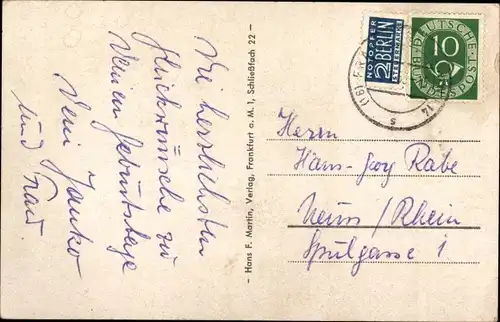 Die herzlichsten
Glückwünsche zu
Deinem Geburtstage
Dein Janko
und Frau
- Hans F. Martin, Verlag, Frankfurt a. M. 1, Schließfach 22 -
NOTOPFER
2 BERLIN
STEUERMARKE
DEUTSCHE
BUNDESPOST
10
(16)
s
Herrn
Hans-Jog Rabe
Neuss/Rhein
Spulgasse 1